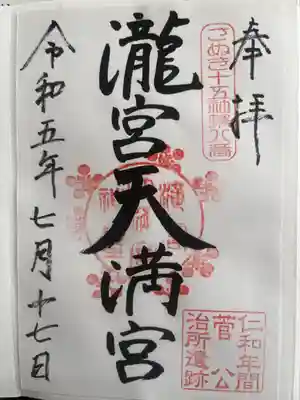 奉拝
さぬき十五社
八番
瀧宮天満宮
仁和年間
菅公
治所遺跡
令和五年七月十七日